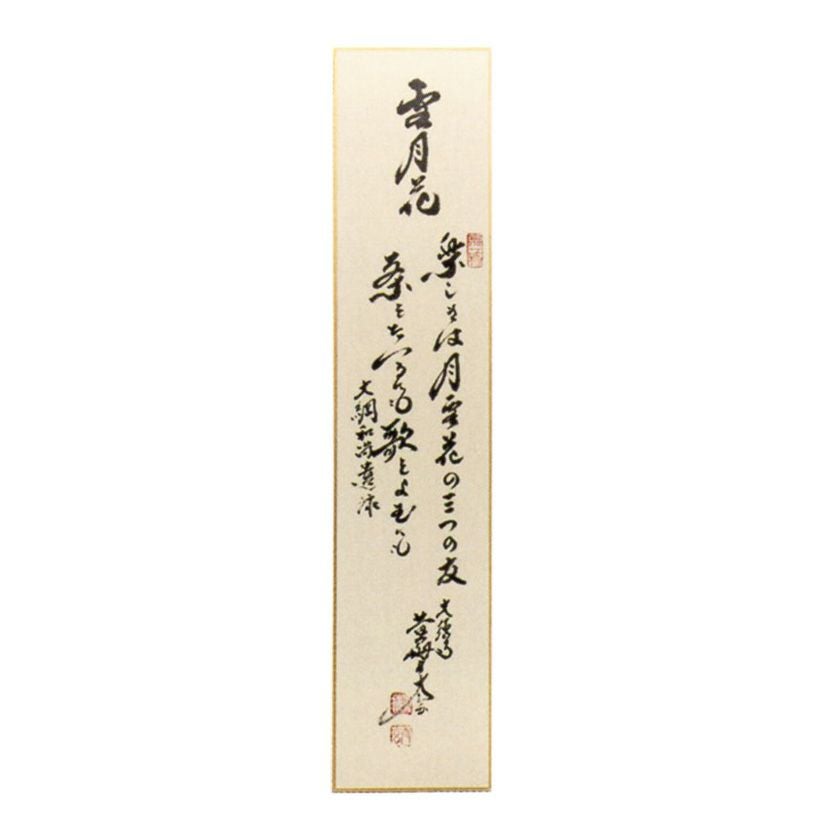 雪月花
楽しさは月雪花の三つの友
茶をたつるも歌をよむも
大綱和尚遺詠
大徳寺